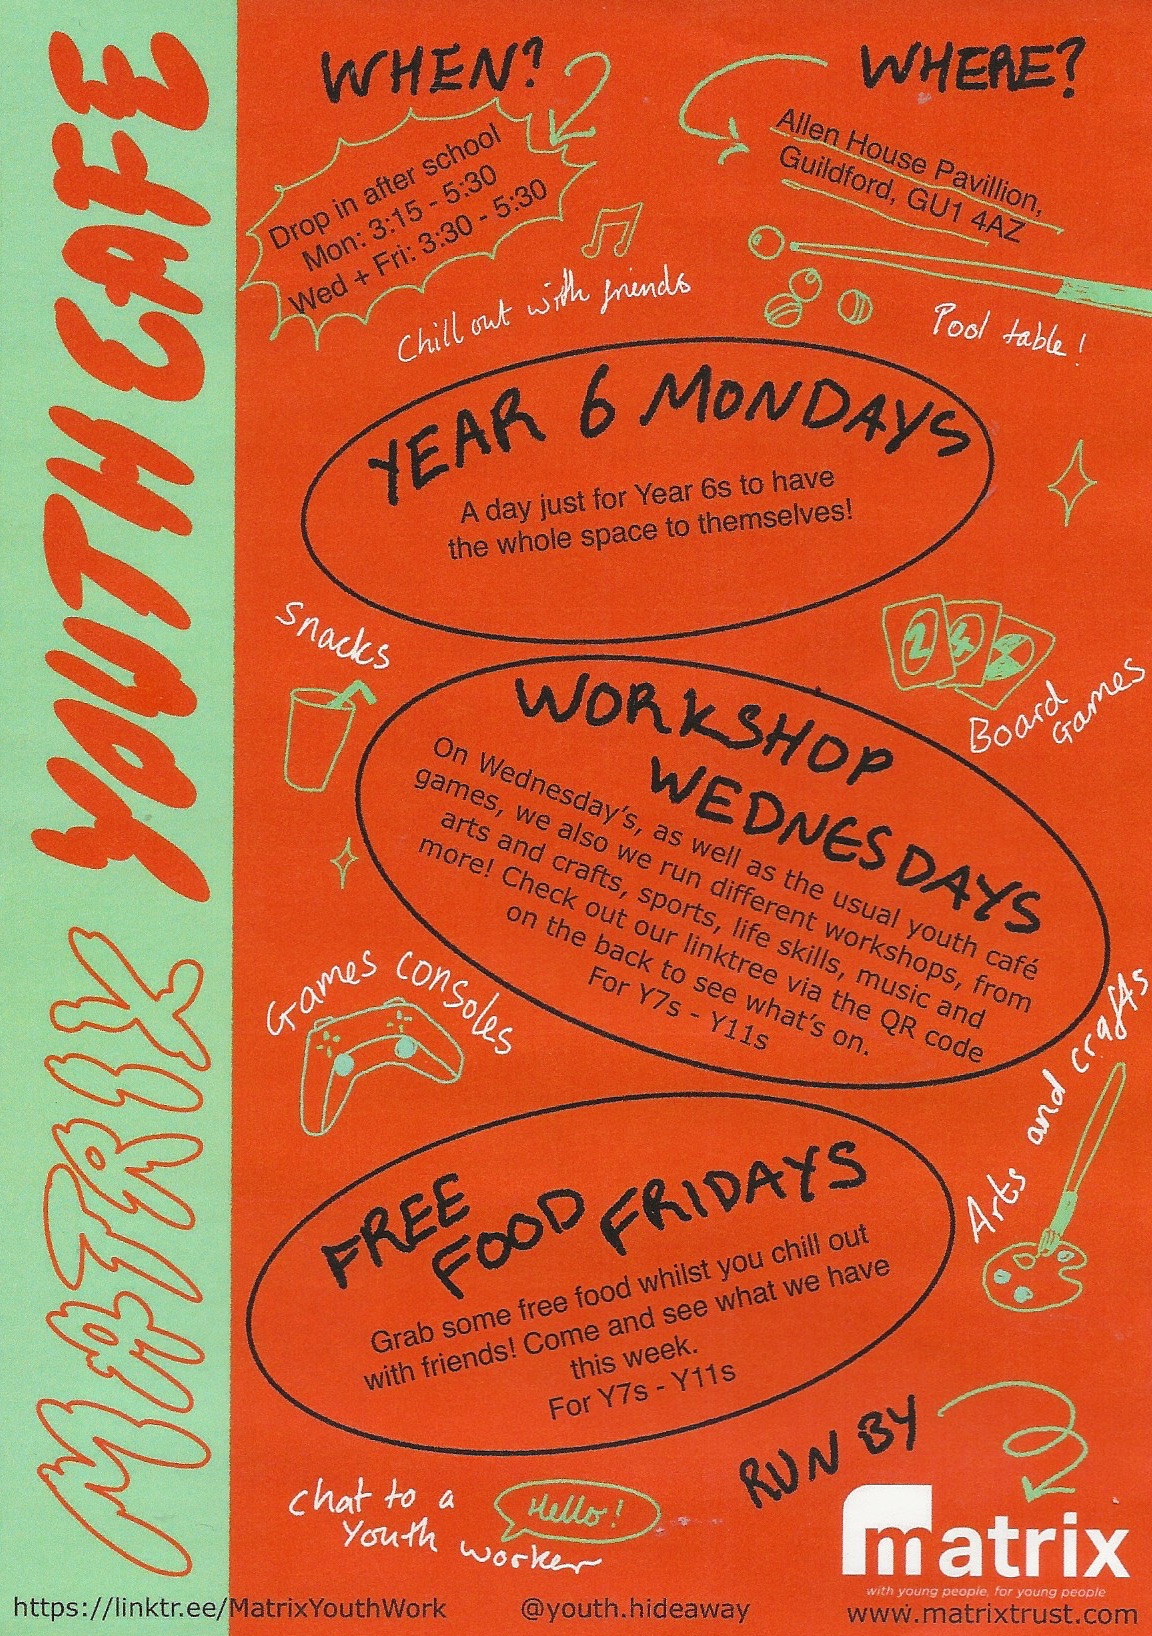 MATRIX YOUTH CAFE
WHEN?
Drop in after school
Mon: 3:15 - 5:30
Wed + Fri: 3:30 - 5:30
WHERE?
Allen House Pavillion,
Guildford, GU1 4AZ
Chill out with friends
Pool table!
YEAR 6 MONDAYS
A day just for Year 6s to have
the whole space to themselves!
Snacks
2 4
Board
Games
WORKSHOP
WEDNESDAYS
On Wednesday's, as well as the usual youth café
games, we also we run different workshops, from
arts and crafts, sports, life skills, music and
more! Check out our linktree via the QR code
on the back to see what's on.
For Y7s - Y11s
Games consoles
Arts and crafts
FREE
FOOD FRIDAYS
Grab some free food whilst you chill out
with friends! Come and see what we have
this week.
For Y7s - Y11s
Chat to a
Youth worker
Hello!
RUN BY
matrix
with young people, for young people
https://linktr.ee/MatrixYouthWork
@youth.hideaway
www.matrixtrust.com